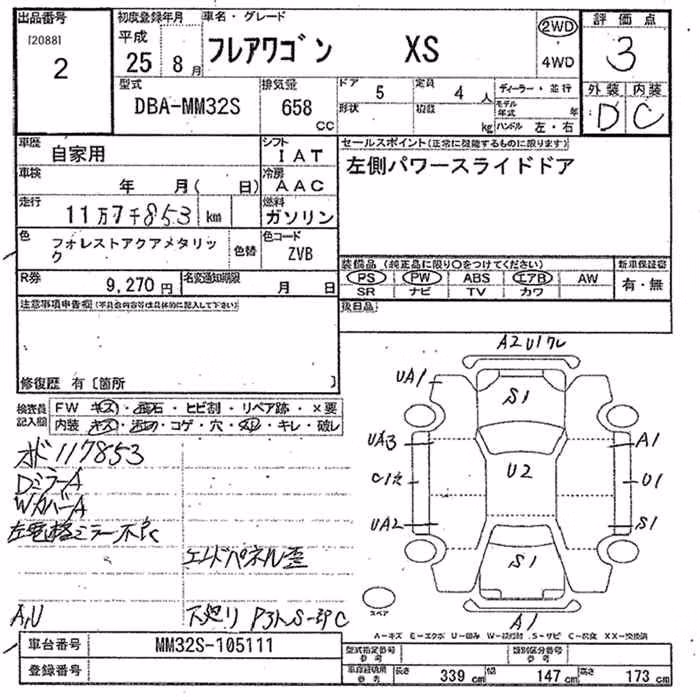 出品番号
[2088]
2
初度登録年月
平成
25 8 月
車名・グレード
フレアワゴン XS
2WD
4WD
評価点
3
外装 内装
D C
型式
DBA-MM32S
排気量
658
cc
ドア
5
形状
定員
4 人
積載
kg
ディーラー・並行
モデル年式 年
ハンドル 左・右
車歴
自家用
シフト
IAT
車検
年 月( 日)
冷房
AAC
走行
11万7千853 km
燃料
ガソリン
色
フォレストアクアメタリック
色替
色コード
ZVB
R券
9,270 円
名変通知期限
月 日
セールスポイント(正常に機能するものに限ります)
左側パワースライドドア
装備品 (純正品に限り○をつけてください)
PS PW ABS エアB AW
SR ナビ TV カワ
新車保証書
有・無
後日品
注意事項申告欄(不具合内容等は具体的に記入して下さい)
修復歴 有〔箇所 〕
検査員記入欄
FW キズ・飛石・ヒビ割・リペア跡・×要
内装 キズ・汚れ・コゲ・穴・・キレ・破レ
オド117853
DミラーA
WカバーA
左電格ミラー不良
エンドパネル歪
A,U
下廻り
A2 U1 ワレ
UA1
S1
UA3
A1
U2
U1
UA2
S1
S1
A1
スペア
A-キズ E-エクボ U-凹み W-波打跡 S-サビ C-腐食 XX-交換済
車台番号
MM32S-105111
登録番号
型式指定番号
参考
類別区分番号
参考
車庫証明用
参考
長さ 339 cm 幅 147 cm 高さ 173 cm